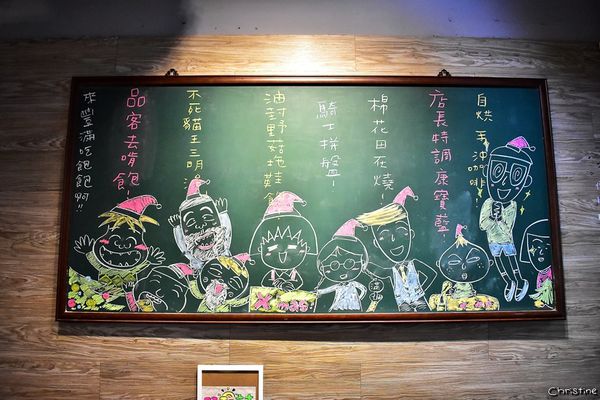 自烘手沖咖啡!
店長特調康寶藍!
棉花田在燒!
騎士拼盤!
油封野菇拖鞋
不死貓王三明
品客去啃飽!
來豐滿吃飽飽啊!!
Christine